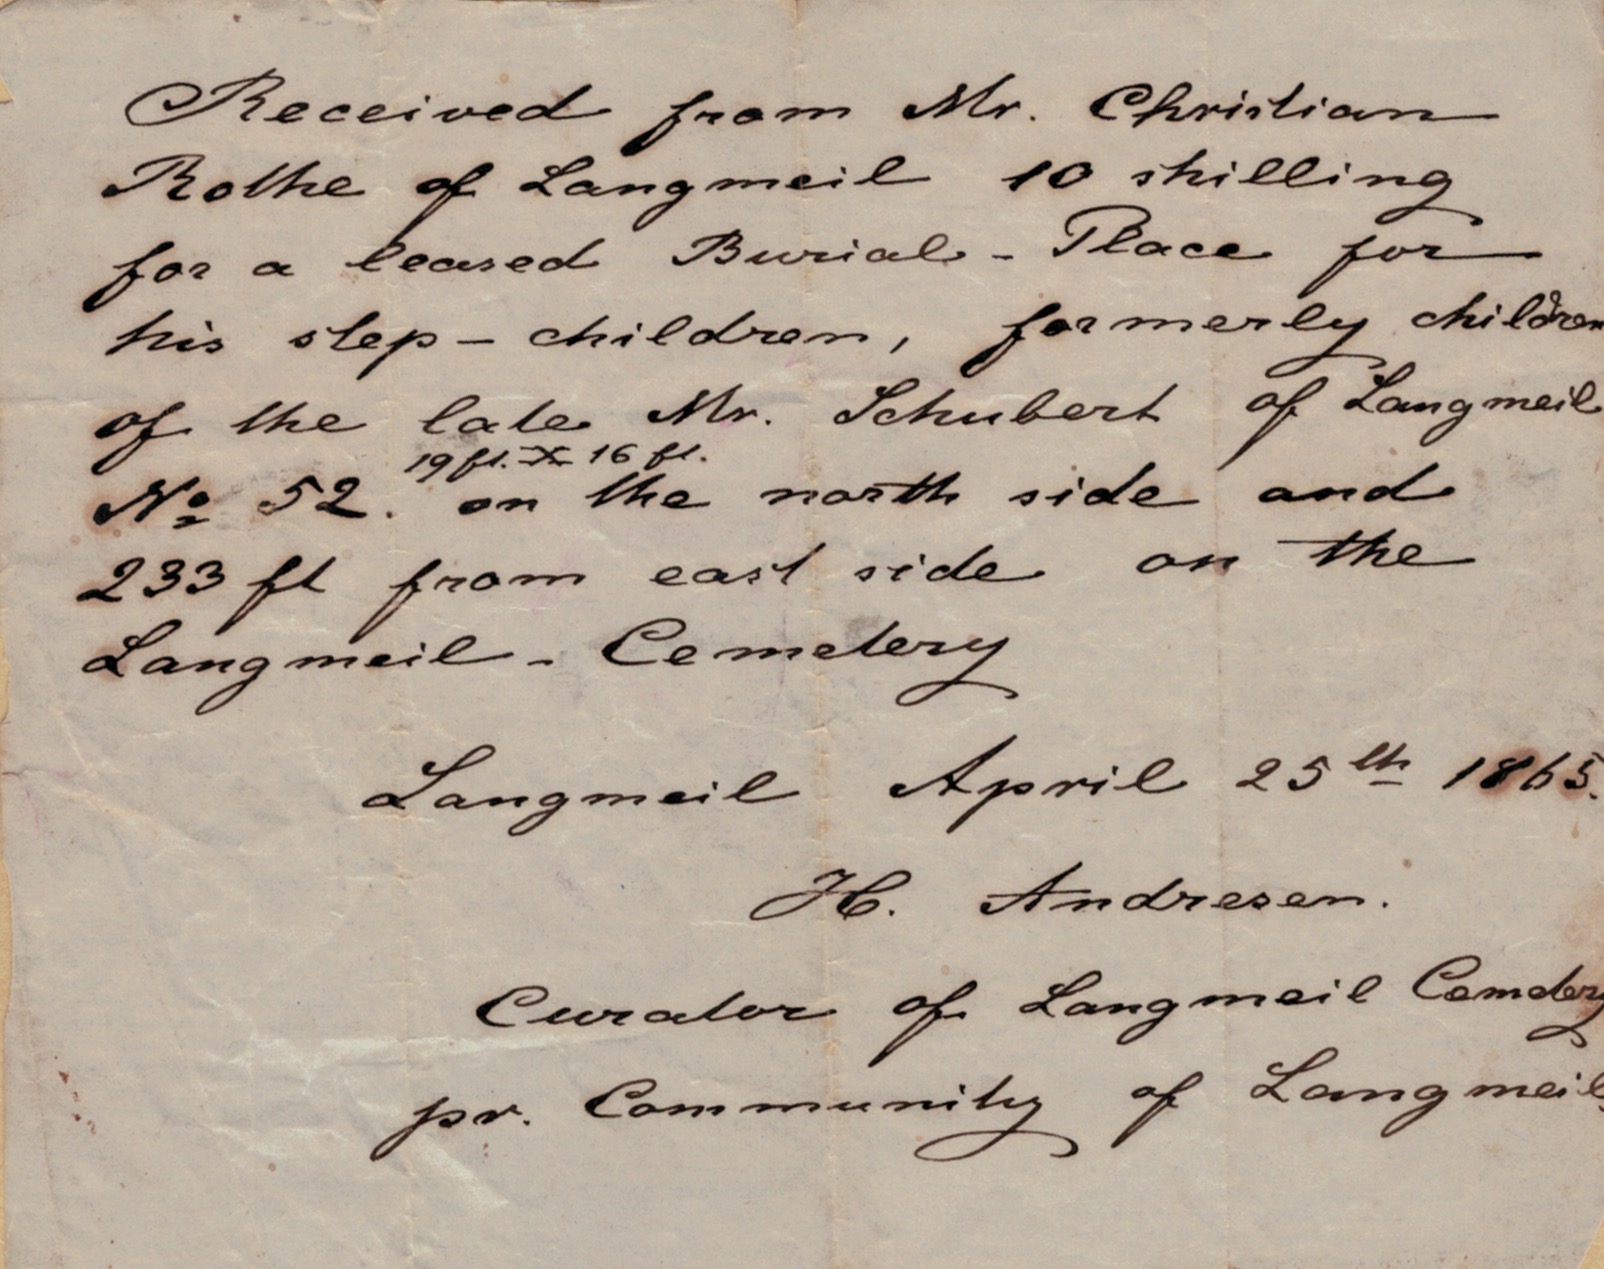 Received from Mr. Christian
Rothe of Langmeil 10 shilling
for a leased Burial - Place for
his step - children, formerly children
of the late Mr. Schubert of Langmeil
19 ft. X 16 ft.
No 52. on the north side and
233 ft from east side on the
Langmeil - Cemetery
Langmeil April 25th 1865.
H. Andresen.
Curator of Langmeil Cemetery
pr. Community of Langmeil.